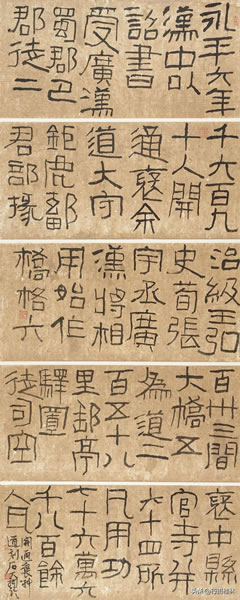 永平六年
漢中以
詔書
受廣漢
蜀郡巴
郡徒二
千六百九
十人開
通褒余
道大守
鉅鹿鄐
君部掾
治級王弘
史荀張
宇丞廣
漢將相
用始作
橋格六
百卅三間
大橋五
為道一
百五十八
里郵亭
驛置
徒司空
褒中縣
官寺并
六十四所
凡用功
七十六萬
千八百餘
人
開通褒斜
道刻石